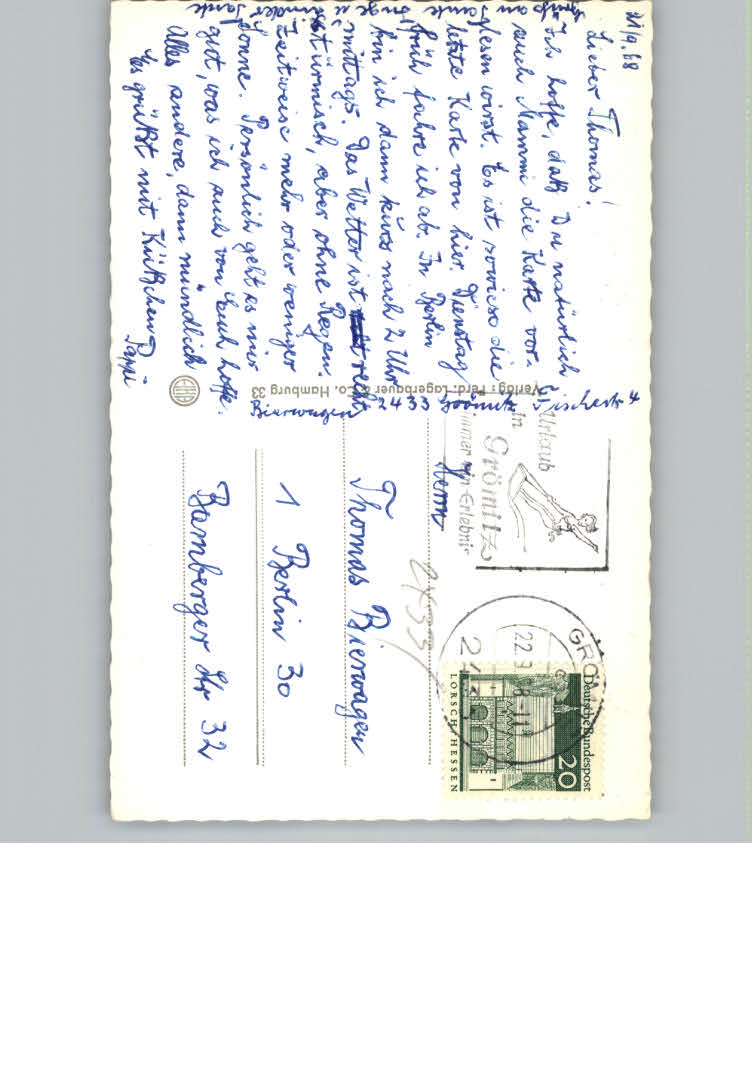 21/9.68
Lieber Thomas!
Ich hoffe, daß Du natürlich
auch Mammi die Karte vor-
lesen wirst. Es ist sowieso die
letzte Karte von hier. Dienstag
früh fahre ich ab. In Berlin
bin ich dann kurz nach 2 Uhr
mittags. Das Wetter ist recht
stürmisch, aber ohne Regen.
Zeitweise mehr oder weniger
Sonne. Persönlich geht es mir
gut, was ich auch von Euch hoffe.
Alles andere, dann mündlich
Es grüßt mit Küßchen
Pappi
Verlag: Ferd. Lagerbauer & Co. Hamburg 33
Bierwagen 2433 Grömitz Fischerstr 4
Urlaub
in
Grömitz
immer ein Erlebnis
Herrn
Thomas Bierwagen
1 Berlin 30
Bamberger Str 32
2433
GRÖM
22.9
Deutsche Bundespost
20
LORSCH/HESSEN